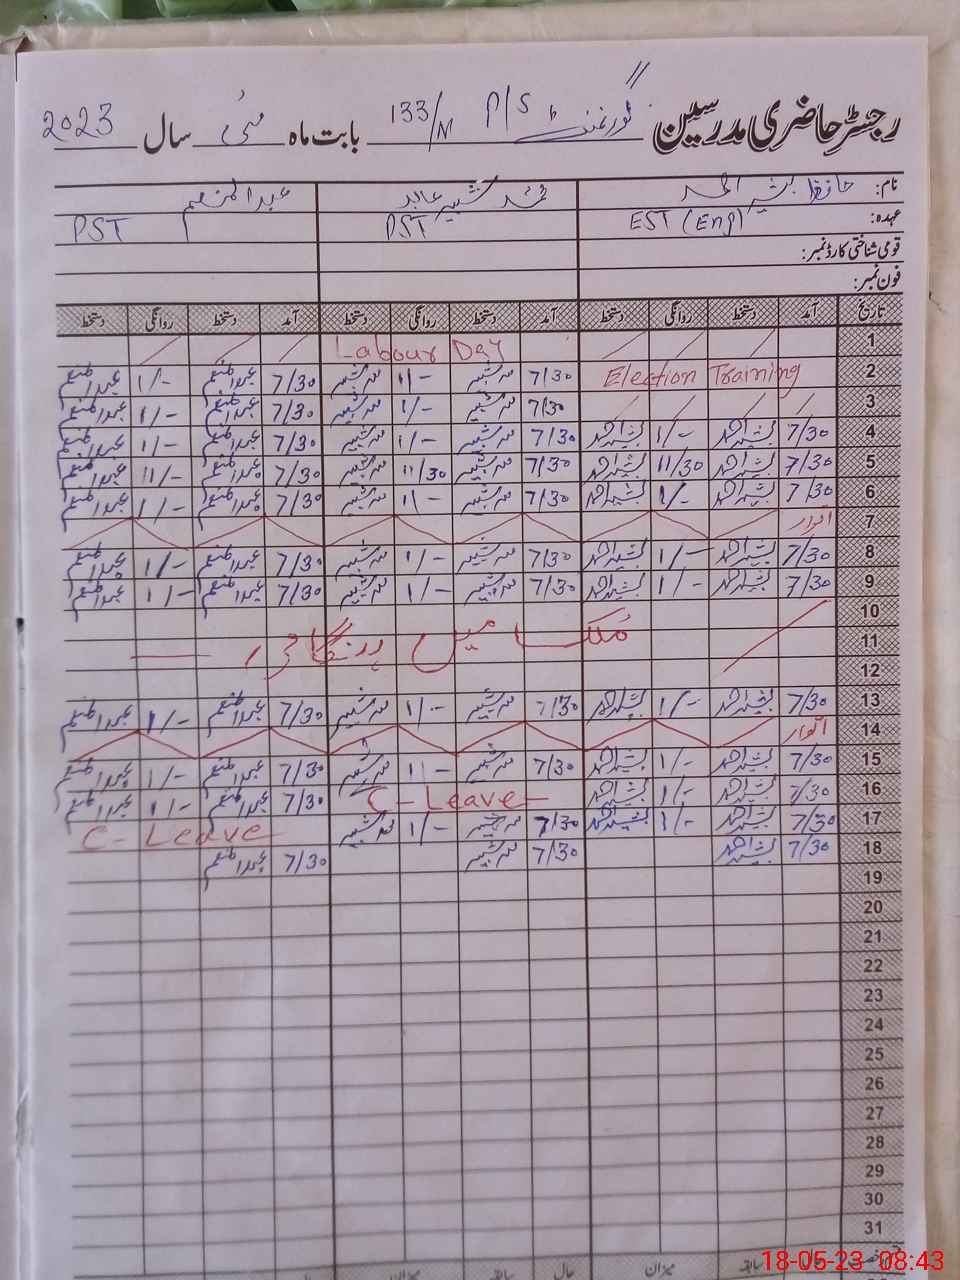 رجسٹر حاضری مدرسین گورنمنٹ P/S 133/M بابت ماہ مئی سال 2023
نام: حافظ بشیر احمد محمد شبیر عابد عبدالمنعم
عہدہ: EST (Eng) PST PST
قومی شناختی کارڈ نمبر:
فون نمبر:
تاریخ آمد دستخط روانگی دستخط آمد دستخط روانگی دستخط آمد دستخط روانگی دستخط
1 Labour Day
2 Election Training 7/30 شبیر 1/- شبیر 7/30 عبدالمنعم 1/- عبدالمنعم
3 7/30 شبیر 1/- شبیر 7/30 عبدالمنعم 1/- عبدالمنعم
4 7/30 بشیر احمد 1/- بشیر احمد 7/30 شبیر 1/- شبیر 7/30 عبدالمنعم 1/- عبدالمنعم
5 7/30 بشیر احمد 11/30 بشیر احمد 7/30 شبیر 11/30 شبیر 7/30 عبدالمنعم 11/- عبدالمنعم
6 7/30 بشیر احمد 1/- بشیر احمد 7/30 شبیر 1/- شبیر 7/30 عبدالمنعم 1/- عبدالمنعم
7 اتوار
8 7/30 بشیر احمد 1/- بشیر احمد 7/30 شبیر 1/- شبیر 7/30 عبدالمنعم 1/- عبدالمنعم
9 7/30 بشیر احمد 1/- بشیر احمد 7/30 شبیر 1/- شبیر 7/30 عبدالمنعم 1/- عبدالمنعم
10
11 ملک میں ہنگامی
12
13 7/30 بشیر احمد 1/- بشیر احمد 7/30 شبیر 1/- شبیر 7/30 عبدالمنعم 1/- عبدالمنعم
14 اتوار
15 7/30 بشیر احمد 1/- بشیر احمد 7/30 شبیر 1/- شبیر 7/30 عبدالمنعم 1/- عبدالمنعم
16 7/30 بشیر احمد 1/- بشیر احمد C-Leave 7/30 عبدالمنعم 1/- عبدالمنعم
17 7/30 بشیر احمد 1/- بشیر احمد 7/30 شبیر 1/- شبیر C-Leave
18 7/30 بشیر احمد 7/30 شبیر 7/30 عبدالمنعم
19
20
21
22
23
24
25
26
27
28
29
30
31
سابقہ میزان حال سابقہ میزان
18-05-23 08:43